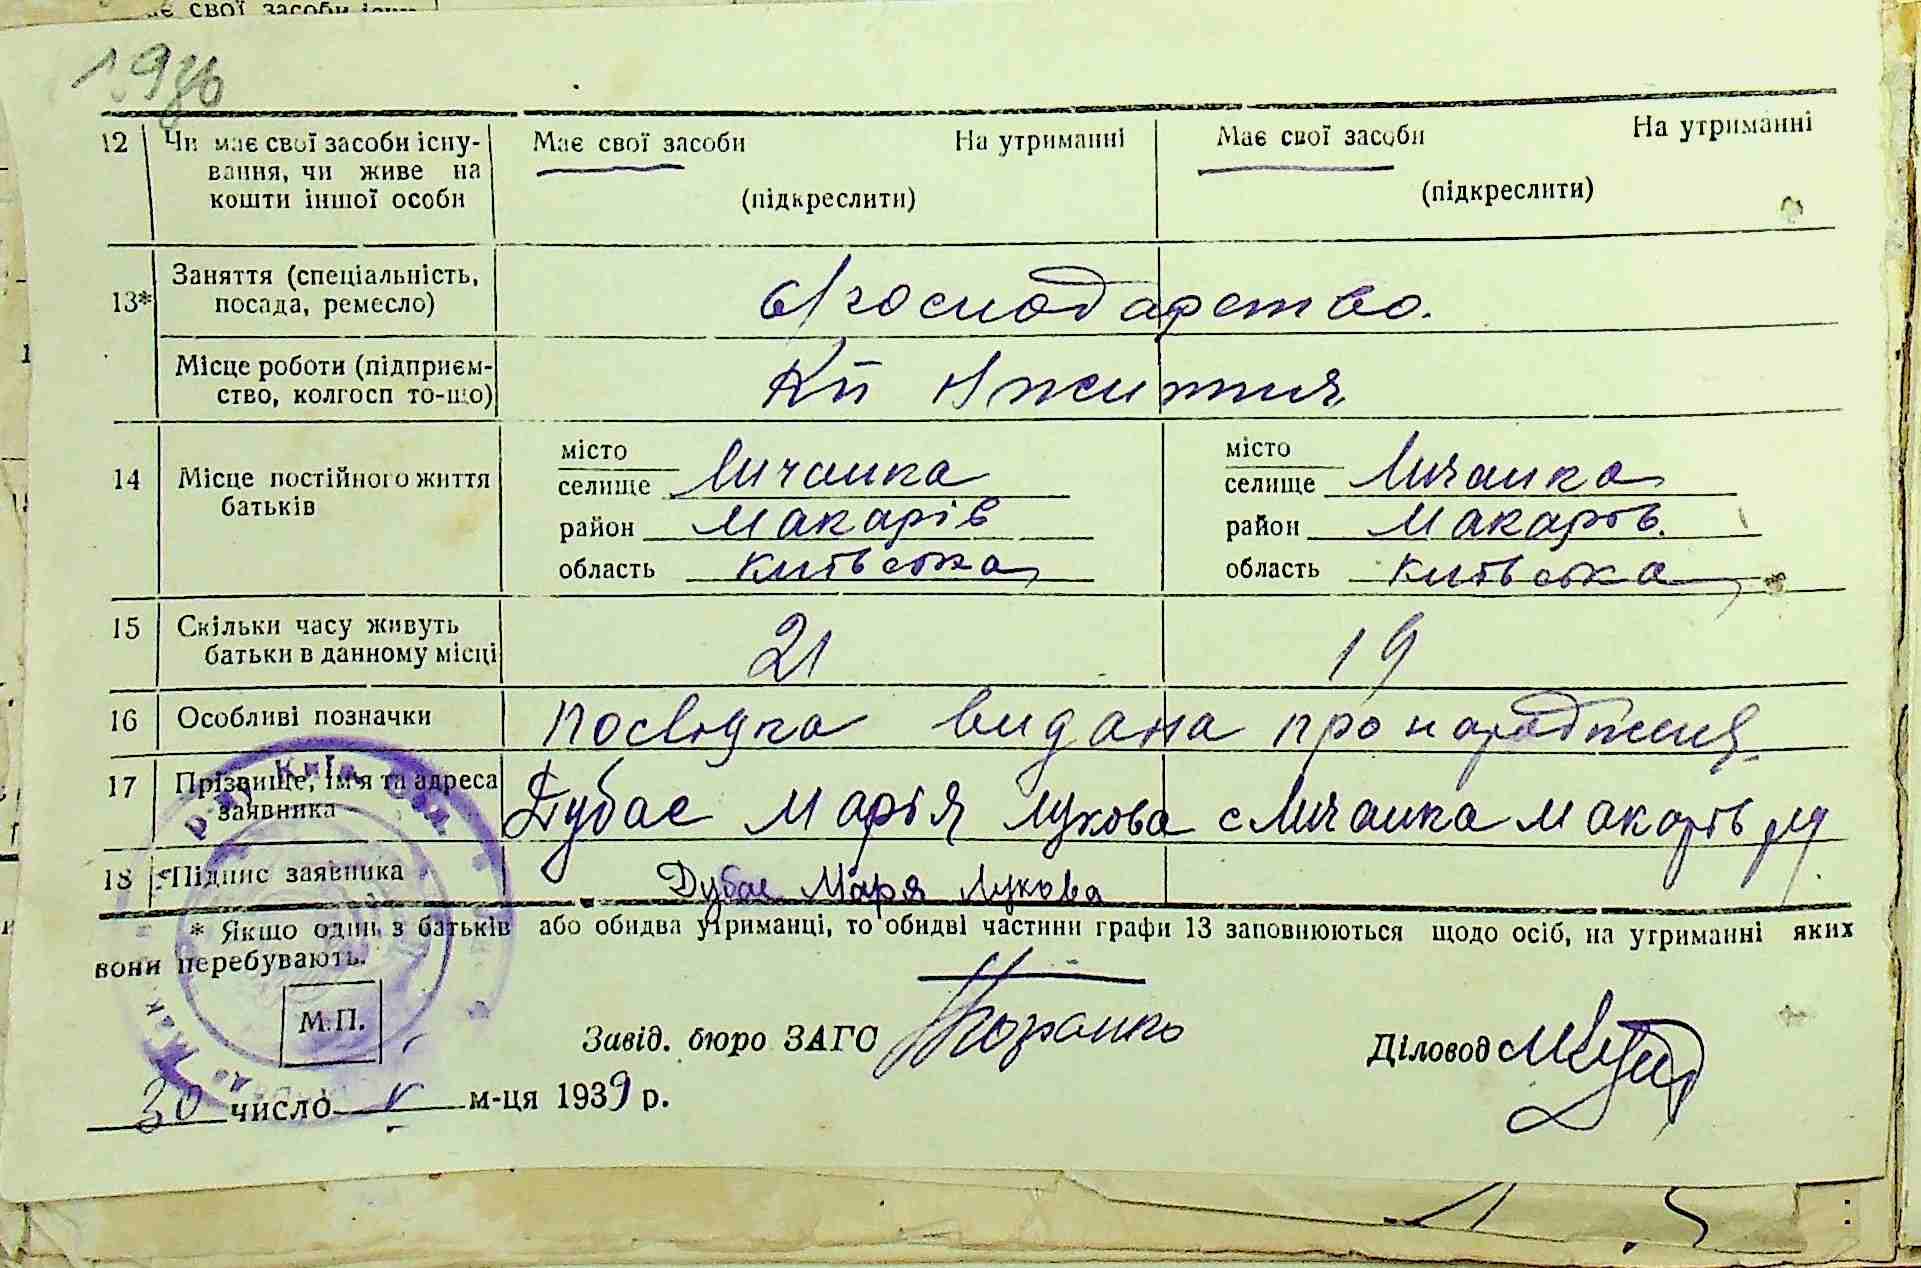 є свої засоби існу-
12 Чи має свої засоби існу- Має свої засоби На утриманні Має свої засоби На утриманні
вання, чи живе на
кошти іншої особи (підкреслити) (підкреслити)
13* Заняття (спеціальність,
посада, ремесло) с/господарство.
Місце роботи (підприєм-
ство, колгосп то-що) Кп Нжиття
14 Місце постійного життя
батьків
місто місто
селище Личанка селище Личанка
район Макарів район Макарів.
область Київська область Київська
15 Скільки часу живуть
батьки в данному місці 21 19
16 Особливі позначки Посвідка видана про народження
17 Прізвище, ім'я та адреса
заявника Дубае Марія Лукова с Личанка Макарів рд
18 Підпис заявника Дубае Маря Лукова
* Якщо один з батьків або обидва утриманці, то обидві частини графи 13 заповнюються щодо осіб, на утриманні яких
вони перебувають.
М.П.
Завід. бюро ЗАГС Діловод
30 число V м-ця 1939 р.